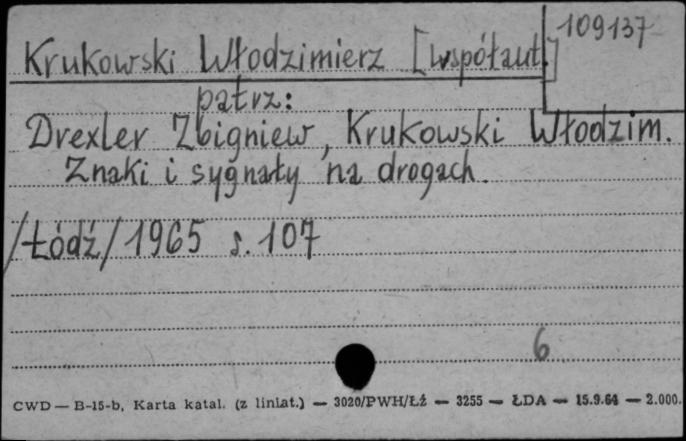 109137
Krukowski Włodzimierz [współaut.]
patrz:
Drexler Zbigniew, Krukowski Włodzim.
Znaki i sygnały na drogach.
/Łódź/ 1965 s. 107
6
CWD — B-15-b, Karta katal. (z liniat.) — 3020/PWH/Łź — 3255 — ŁDA — 15.9.64 — 2.000.